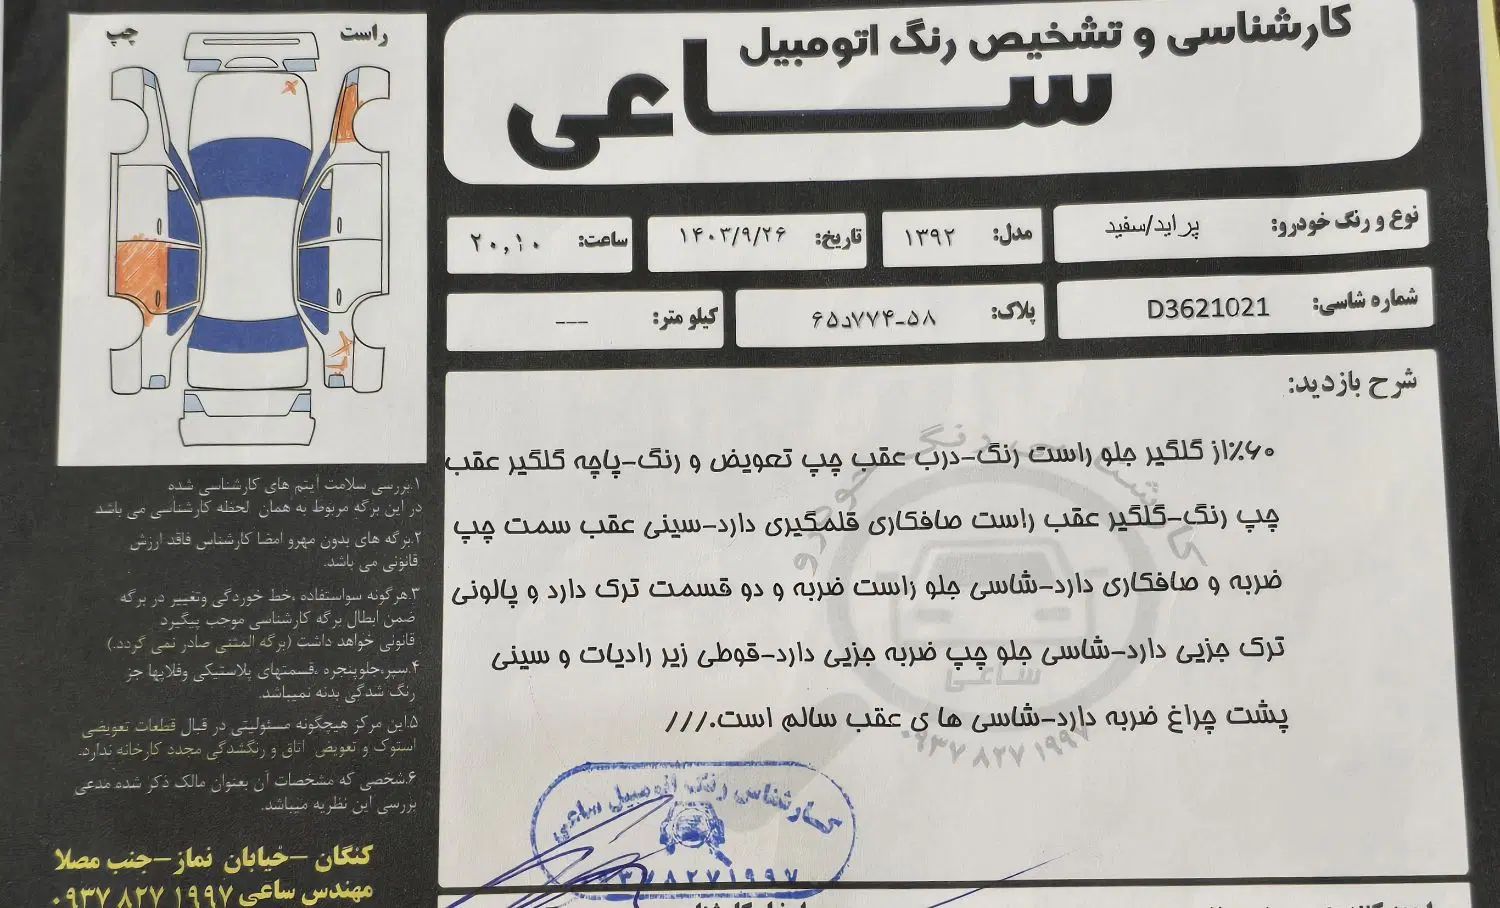 کارشناسی و تشخیص رنگ اتومبیل
ساعی
راست
چپ
نوع و رنگ خودرو: پراید/سفید
مدل: ۱۳۹۲
تاریخ: ۱۴۰۳/۹/۲۶
ساعت: ۲۰,۱۰
شماره شاسی: D3621021
پلاک: ۵۸-۷۷۴د۶۵
کیلو متر: ---
شرح بازدید:
۶۰٪از گلگیر جلو راست رنگ-درب عقب چپ تعویض و رنگ-پاچه گلگیر عقب
چپ رنگ-گلگیر عقب راست صافکاری قلمگیری دارد-سینی عقب سمت چپ
ضربه و صافکاری دارد-شاسی جلو راست ضربه و دو قسمت ترک دارد و پالونی
ترک جزیی دارد-شاسی جلو چپ ضربه جزیی دارد-قوطی زیر رادیات و سینی
پشت چراغ ضربه دارد-شاسی های عقب سالم است.///
ساعی
۰۹۳۷ ۸۲۷ ۱۹۹۷
کارشناسی رنگ اتومبیل ساعی
۳۷۸۲۷۱۹۹۷
۱.بررسی سلامت آیتم های کارشناسی شده
در این برگه مربوط به همان لحظه کارشناسی می باشد
۲.برگه های بدون مهرو امضا کارشناس فاقد ارزش
قانونی می باشد.
۳.هرگونه سواستفاده ،خط خوردگی وتغییر در برگه
ضمن ابطال برگه کارشناسی موجب پیگیرد
قانونی خواهد داشت (برگه المثنی صادر نمی گردد.)
۴.سپر،جلوپنجره ،قسمتهای پلاستیکی وقلابها جز
رنگ شدگی بدنه نمیباشد.
۵.این مرکز هیچگونه مسئولیتی در قبال قطعات تعویضی
استوک و تعویض اتاق و رنگشدگی مجدد کارخانه ندارد.
۶.شخصی که مشخصات آن بعنوان مالک ذکر شده مدعی
بررسی این نظریه میباشد.
کنگان -خیابان نماز-جنب مصلا
مهندس ساعی ۰۹۳۷ ۸۲۷ ۱۹۹۷